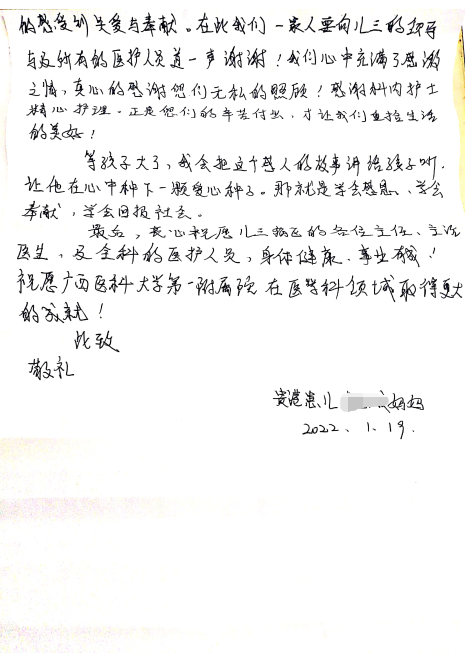 的感受到关爱与奉献。在此我们一家人要向儿三的领导
与及所有的医护人员道一声谢谢！我们心中充满了感激
之情，真心的感谢您们无私的照顾！感谢科内护士
精心护理。正是他们的辛苦付出，才让我们直接生活
的美好！
等孩子大了，我会把这个感人的故事讲给孩子听，
让他在心中种下一颗爱心种子。那就是学会感恩、学会
奉献，学会回报社会。
最后，衷心祝愿儿三病区的各位主任、主治
医生，及全科的医护人员，身体健康、事业有成！
祝愿广西医科大学第一附属院在医学科领域取得更大
的成就！
此致
敬礼
贵港患儿 妈妈
2022、1.19.